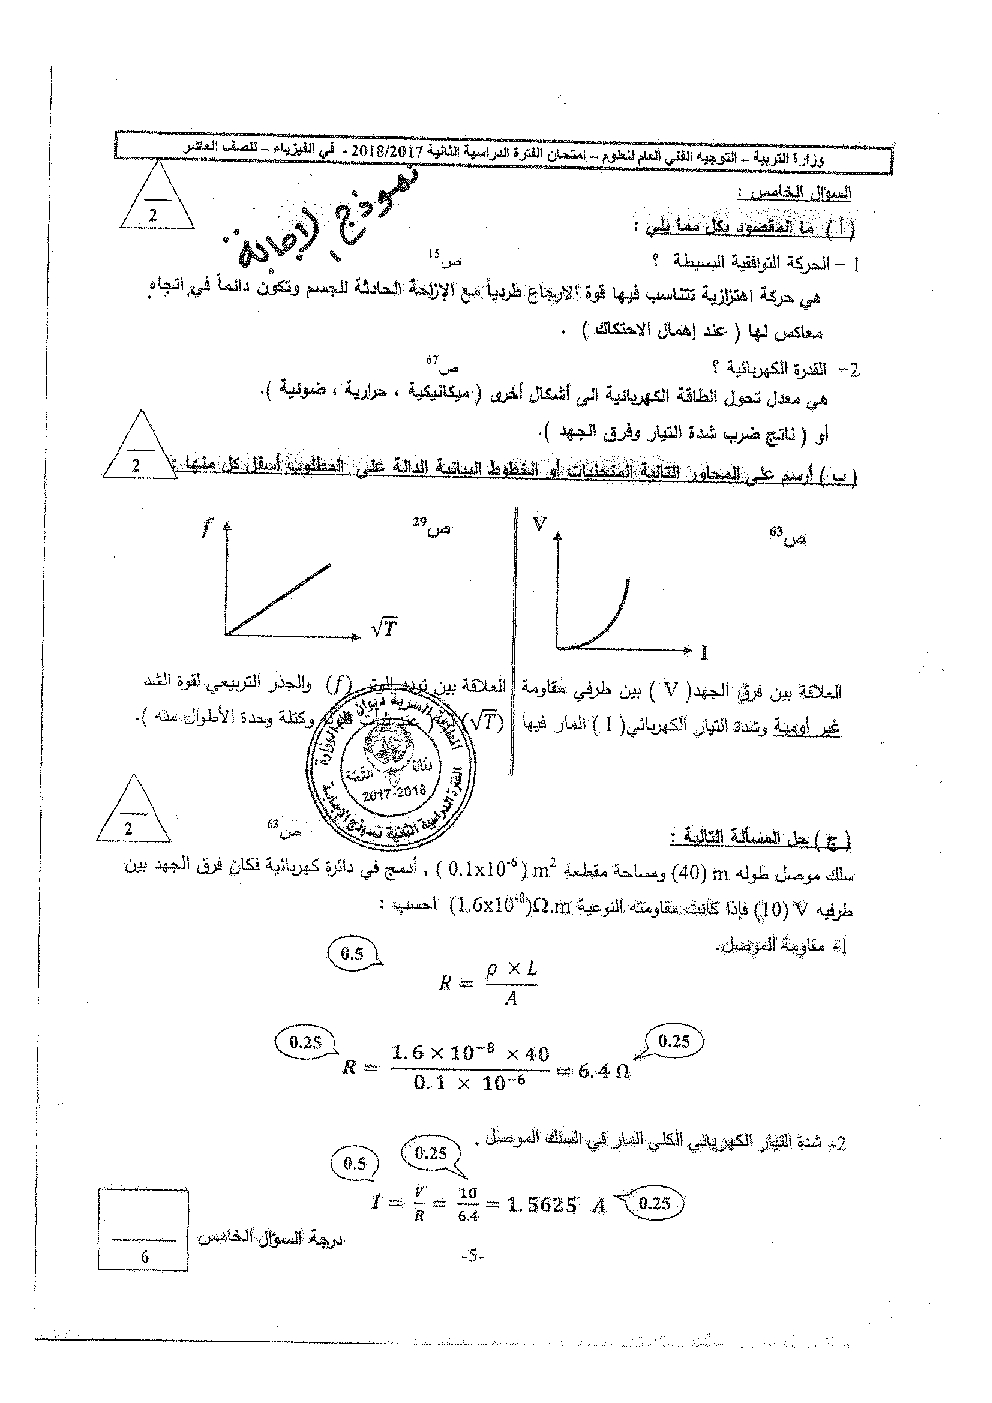 وزارة التربية – التوجيه الفني العام للعلوم – امتحان الفترة الدراسية الثانية 2018/2017 - في الفيزياء – للصف العاشر
نموذج الإجابة
2
السؤال الخامس :
( أ ) ما المقصود بكل مما يلي :
1 – الحركة التوافقية البسيطة ؟ ص15
هي حركة اهتزازية تتناسب فيها قوة الارجاع طردياً مع الإزاحة الحادثة للجسم وتكون دائماً في اتجاه
معاكس لها ( عند إهمال الاحتكاك ) .
2- القدرة الكهربائية ؟ ص67
هي معدل تحول الطاقة الكهربائية الى أشكال أخرى ( ميكانيكية ، حرارية ، ضوئية ).
أو ( ناتج ضرب شدة التيار وفرق الجهد ).
2
( ب ) أرسم على المحاور التالية المنحنيات أو الخطوط البيانية الدالة على المطلوب أسفل كل منها :
ص63
V
I
العلاقة بين فرق الجهد( V ) بين طرفي مقاومة
غير أومية وشدة التيار الكهربائي( I ) المار فيها
ص29
f
√T
العلاقة بين تردد الوتر (f) والجذر التربيعي لقوة الشد
(√T) وكتلة وحدة الأطوال منه ).
2017-2018
2
( ج ) حل المسألة التالية : ص63
سلك موصل طوله m (40) ومساحة مقطعة m² ( 0.1x10⁻⁶ ) ، أدمج في دائرة كهربائية فكان فرق الجهد بين
طرفيه V (10) فإذا كانت مقاومته النوعية (1.6x10⁻⁸)Ω.m احسب :
1- مقاومة الموصل.
0.5
R = ρ × L / A
0.25
R = 1.6 × 10⁻⁸ × 40 / 0.1 × 10⁻⁶ = 6.4 Ω
0.25
2- شدة التيار الكهربائي الكلي المار في السلك الموصل .
0.5
0.25
I = V/R = 10/6.4 = 1.5625 A
0.25
درجة السؤال الخامس
6
-5-